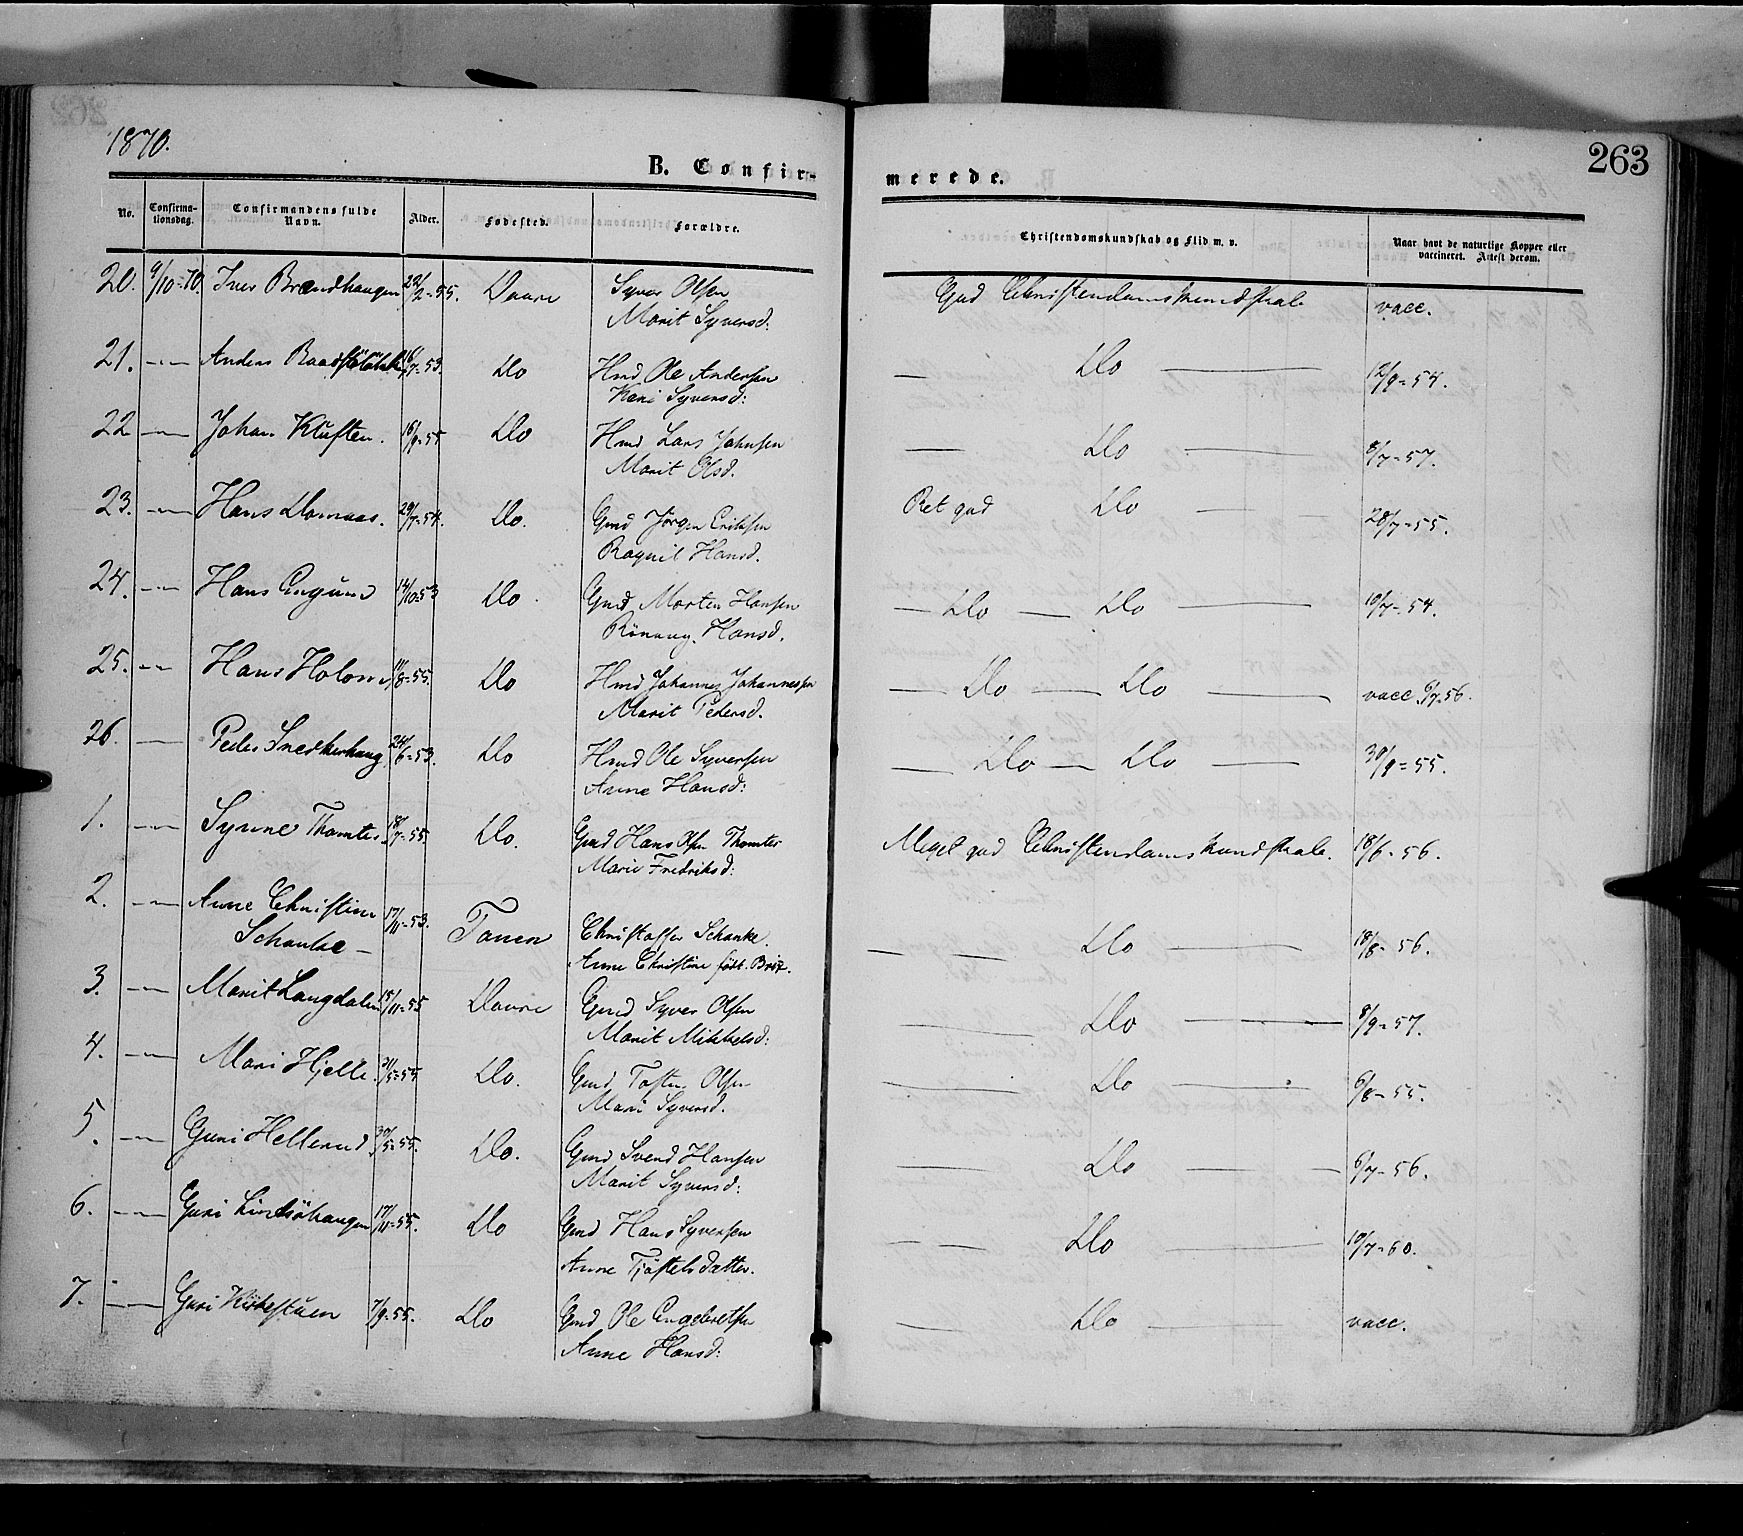 1870.
263
B. Confir-
merede.
No. Confirma-tionsdag. Confirmandens fulde Navn. Alder. Fødested. Forældre. Christendomskundskab og Flid m. v. Naar havt de naturlige Kopper eller vaccineret. Attest derom.
20. 9/10=70. Iver Brændhaugen 22/2=55. Dovre Syver Olsen God Christendomskundskab vacc.
Marit Syversd.
21. — Anders 53. Do Hmd Ole Andersen — Do — 12/9=54.
Kari Syversd:
22 — Johan Kluften. 16/9=55 Do Hmd Lars Johnsen — Do — 8/7=57.
Marit Olsd.
23. — Hans Domaas. 29/7=54. Do. Gmd Jørgen Eriksen Ret god Do — 28/7=55.
Ragnil Hansd.
24. — Hans Engum 14/10=53 Do. Gmd Morten Hansen — Do — Do — 10/7=54.
Rönnaug Hansd.
25. — Hans Holom 11/8=55. Do Hmd Johannes Johannessen — Do — Do — vacc. 6/7=56.
Marit Pedersd.
26. — Peder Snedkerhaug 24/6=53. Do Hmd Ole Syversen — Do — Do — 30/9=55.
Anne Hansd:
1. — Synne Thomter 18/7=55. Do. Gmd Hans Olsen Thomter Meget god Christendomskundskab. 18/6=56.
Marie Fredriksd:
2. — Anne Christine 17/11=53. Tanen Christoffer Schanke. — Do — 18/8=56.
Schanke — Anne Christine født
3. — Marit Langdalen 15/11=55 Dovre Gmd Syver Olsen — Do — 8/9=57.
Marit Mikkelsd:
4. — Mari Hjelle. 31/5=55 Do. Gmd Tosten Olsen — Do — 6/8=55.
Mari Syversd.
5. — Guri Hellerud 30/5=55. Do. Gmd Svend Hansen — Do — 6/7=56.
Marit Syversd:
6. — Guri Lindsöhaugen 17/11=55. Do Gmd Hans Syversen — Do — 10/7=60.
Anne Tjöstelsdatter.
7. — Guri Kirkestuen 7/9=55. Do Gmd Ole Engebretsen — Do — vacc.
Anne Hansd: